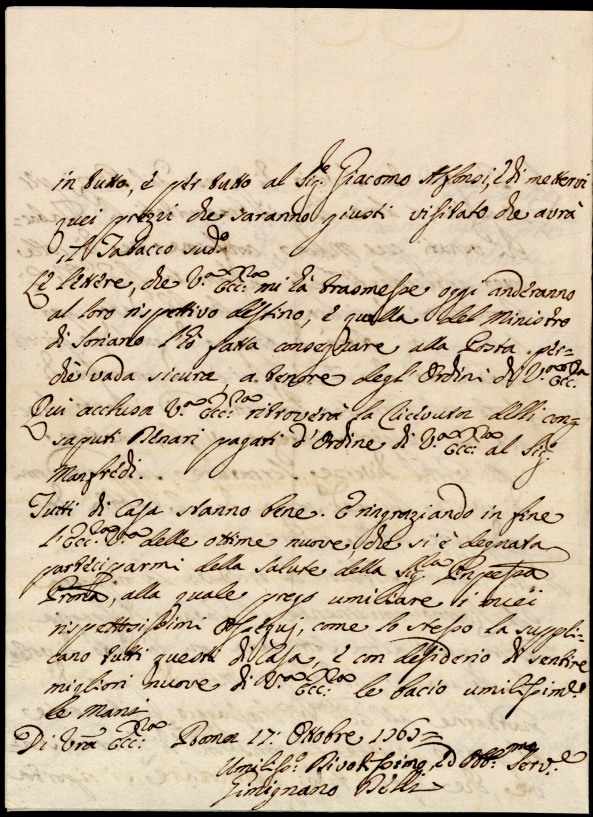 in tutto, è per tutto al Sig.r Giacomo Alfonsi, è di mettervi
quei prezzi che saranno giusti visitato che avrà
il Tabacco sud.o
Le lettere, che V.a Ecc.za mi hà trasmesse oggi anderanno
al loro rispettivo destino, è quella del Ministro
di Soriano l'hò fatta consegnare alla Posta per=
che vada sicura, a tenore degl'Ordini di V.a Ecc.za
Qui acclusa V.a Ecc.za ritroverà la Ricevuta delli con=
saputi Denari pagati d'Ordine di V.a Ecc.za al Sig.r
Manfredi.
Tutti di Casa stanno bene. E ringraziando in fine
l'Ecc.za V.a delle ottime nuove che si è degnata
parteciparmi della salute della Sig.ra Pnpessa
alla quale prego umiliare i miei
rispettosissimi ossequj, come lo stesso la suppli=
cano tutti questi di Casa, è con desiderio di sentire
migliori nuove di V.a Ecc.za le bacio umilissim.e
le mani
Di Vra Ecc.za Roma 17: Ottobre 1765=
Umiliss.o Divotissimo, ed Obb.mo Serv.e
Gimignano Belli